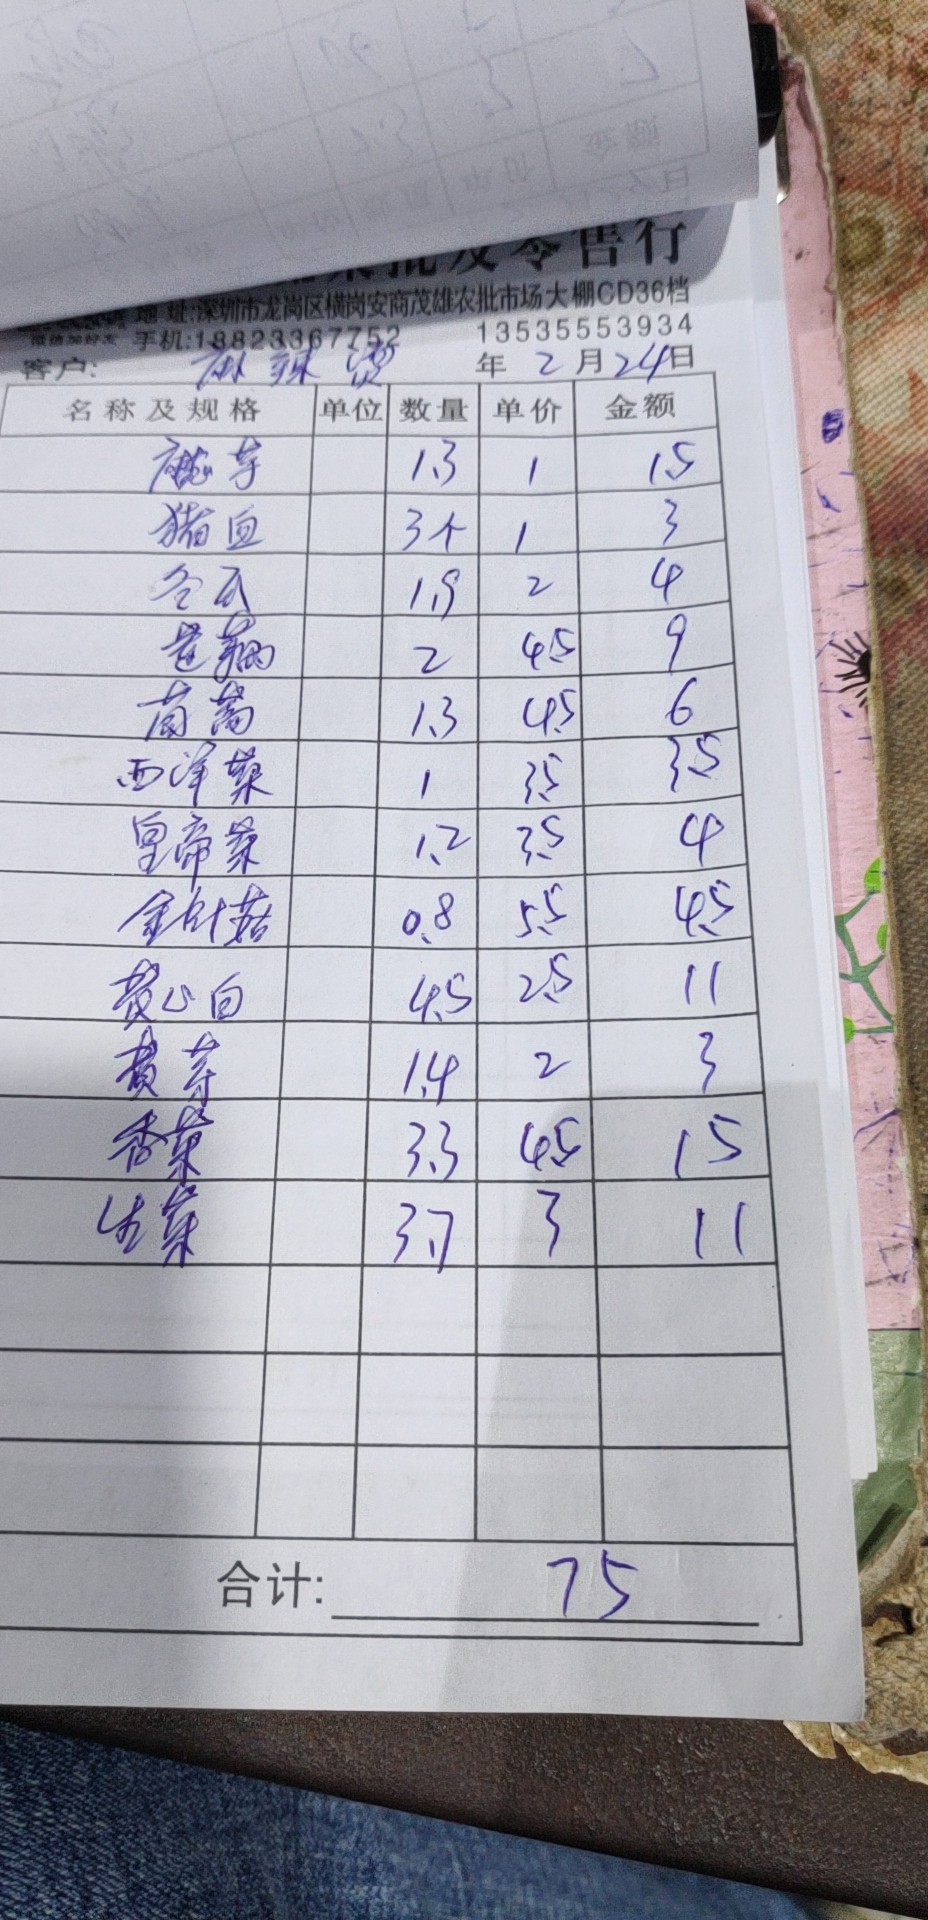 批及零售行
地 址:深圳市龙岗区横岗安商茂雄农批市场大棚CD36档
手机:18823367752 13535553934
客户: 麻辣烫 年 2 月 24 日
名称及规格 单位 数量 单价 金额
魔芋 1.3 1 1.5
猪血 3个 1 3
冬瓜 1.9 2 4
2 4.5 9
茼蒿 1.3 4.5 6
西洋菜 1 3.5 3.5
皇帝菜 1.2 3.5 4
金针菇 0.8 5.5 4.5
黄心白 4.5 2.5 11
黄芽 1.4 2 3
香菜 3.3 4.5 15
生菜 3.7 3 11
合计: 75